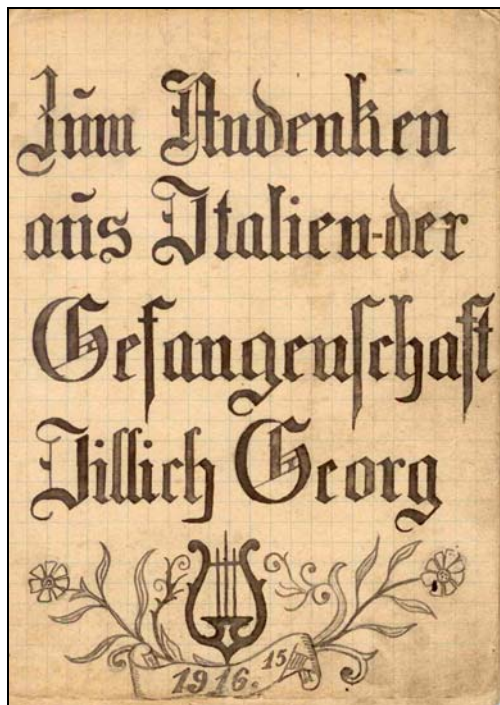 Zum Andenken
aus Italien-der
Gefangenschaft
Jillich Georg
1916. 15/